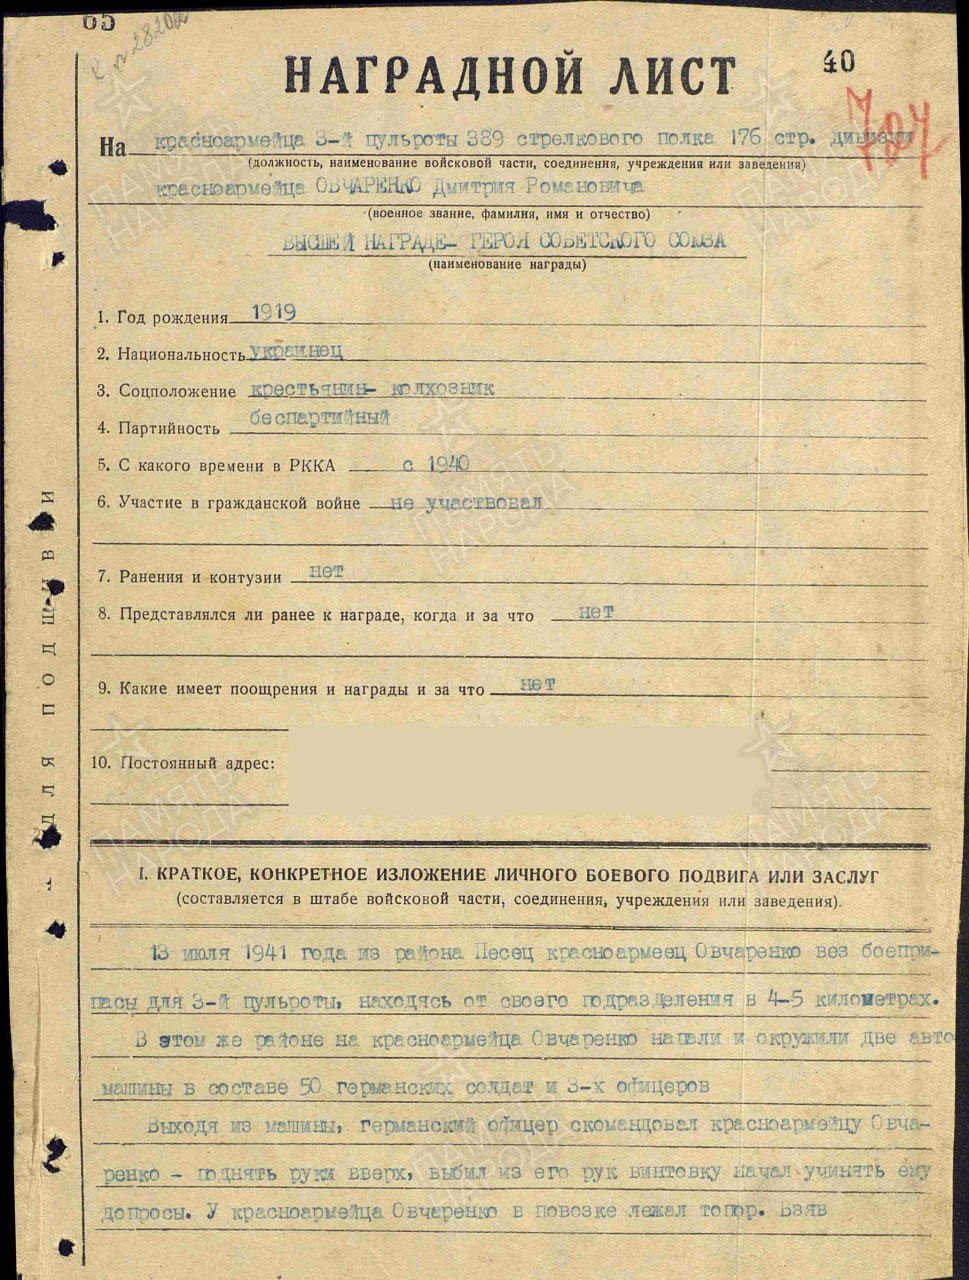 65
40
НАГРАДНОЙ ЛИСТ
707
На красноармейца 3-й пульроты 389 стрелкового полка 176 стр. дивизии
(должность, наименование войсковой части, соединения, учреждения или заведения)
красноармейца ОВЧАРЕНКО Дмитрия Романовича
(военное звание, фамилия, имя и отчество)
ВЫСШЕЙ НАГРАДЕ- ГЕРОЯ СОВЕТСКОГО СОЮЗА
(наименование награды)
1. Год рождения 1919
2. Национальность украинец
3. Соцположение крестьянин- колхозник
4. Партийность беспартийный
5. С какого времени в РККА с 1940
6. Участие в гражданской войне не участвовал
7. Ранения и контузии нет
8. Представлялся ли ранее к награде, когда и за что нет
9. Какие имеет поощрения и награды и за что нет
10. Постоянный адрес:
для подшивки
I. КРАТКОЕ, КОНКРЕТНОЕ ИЗЛОЖЕНИЕ ЛИЧНОГО БОЕВОГО ПОДВИГА ИЛИ ЗАСЛУГ
(составляется в штабе войсковой части, соединения, учреждения или заведения).
13 июля 1941 года из района Песец красноармеец Овчаренко вез боепри-
пасы для 3-й пульроты, находясь от своего подразделения в 4-5 километрах.
В этом же районе на красноармейца Овчаренко напали и окружили две авто
машины в составе 50 германских солдат и 3-х офицеров
Выходя из машины, германский офицер скомандовал красноармейцу Овча-
ренко - поднять руки вверх, выбил из его рук винтовку начал учинять ему
допросы. У красноармейца Овчаренко в повозке лежал топор. Взяв
ПАМЯТЬ НАРОДА